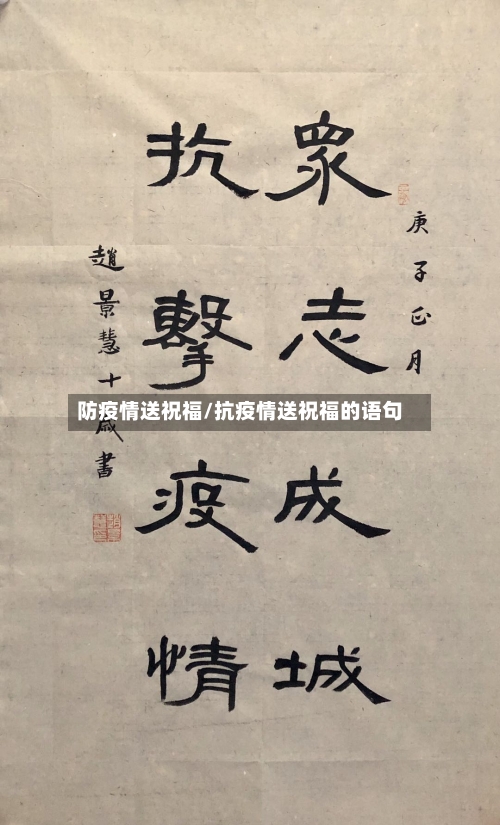 庚子正月
眾志成城
抗擊疫情
趙景慧十歲書
防疫情送祝福/抗疫情送祝福的语句